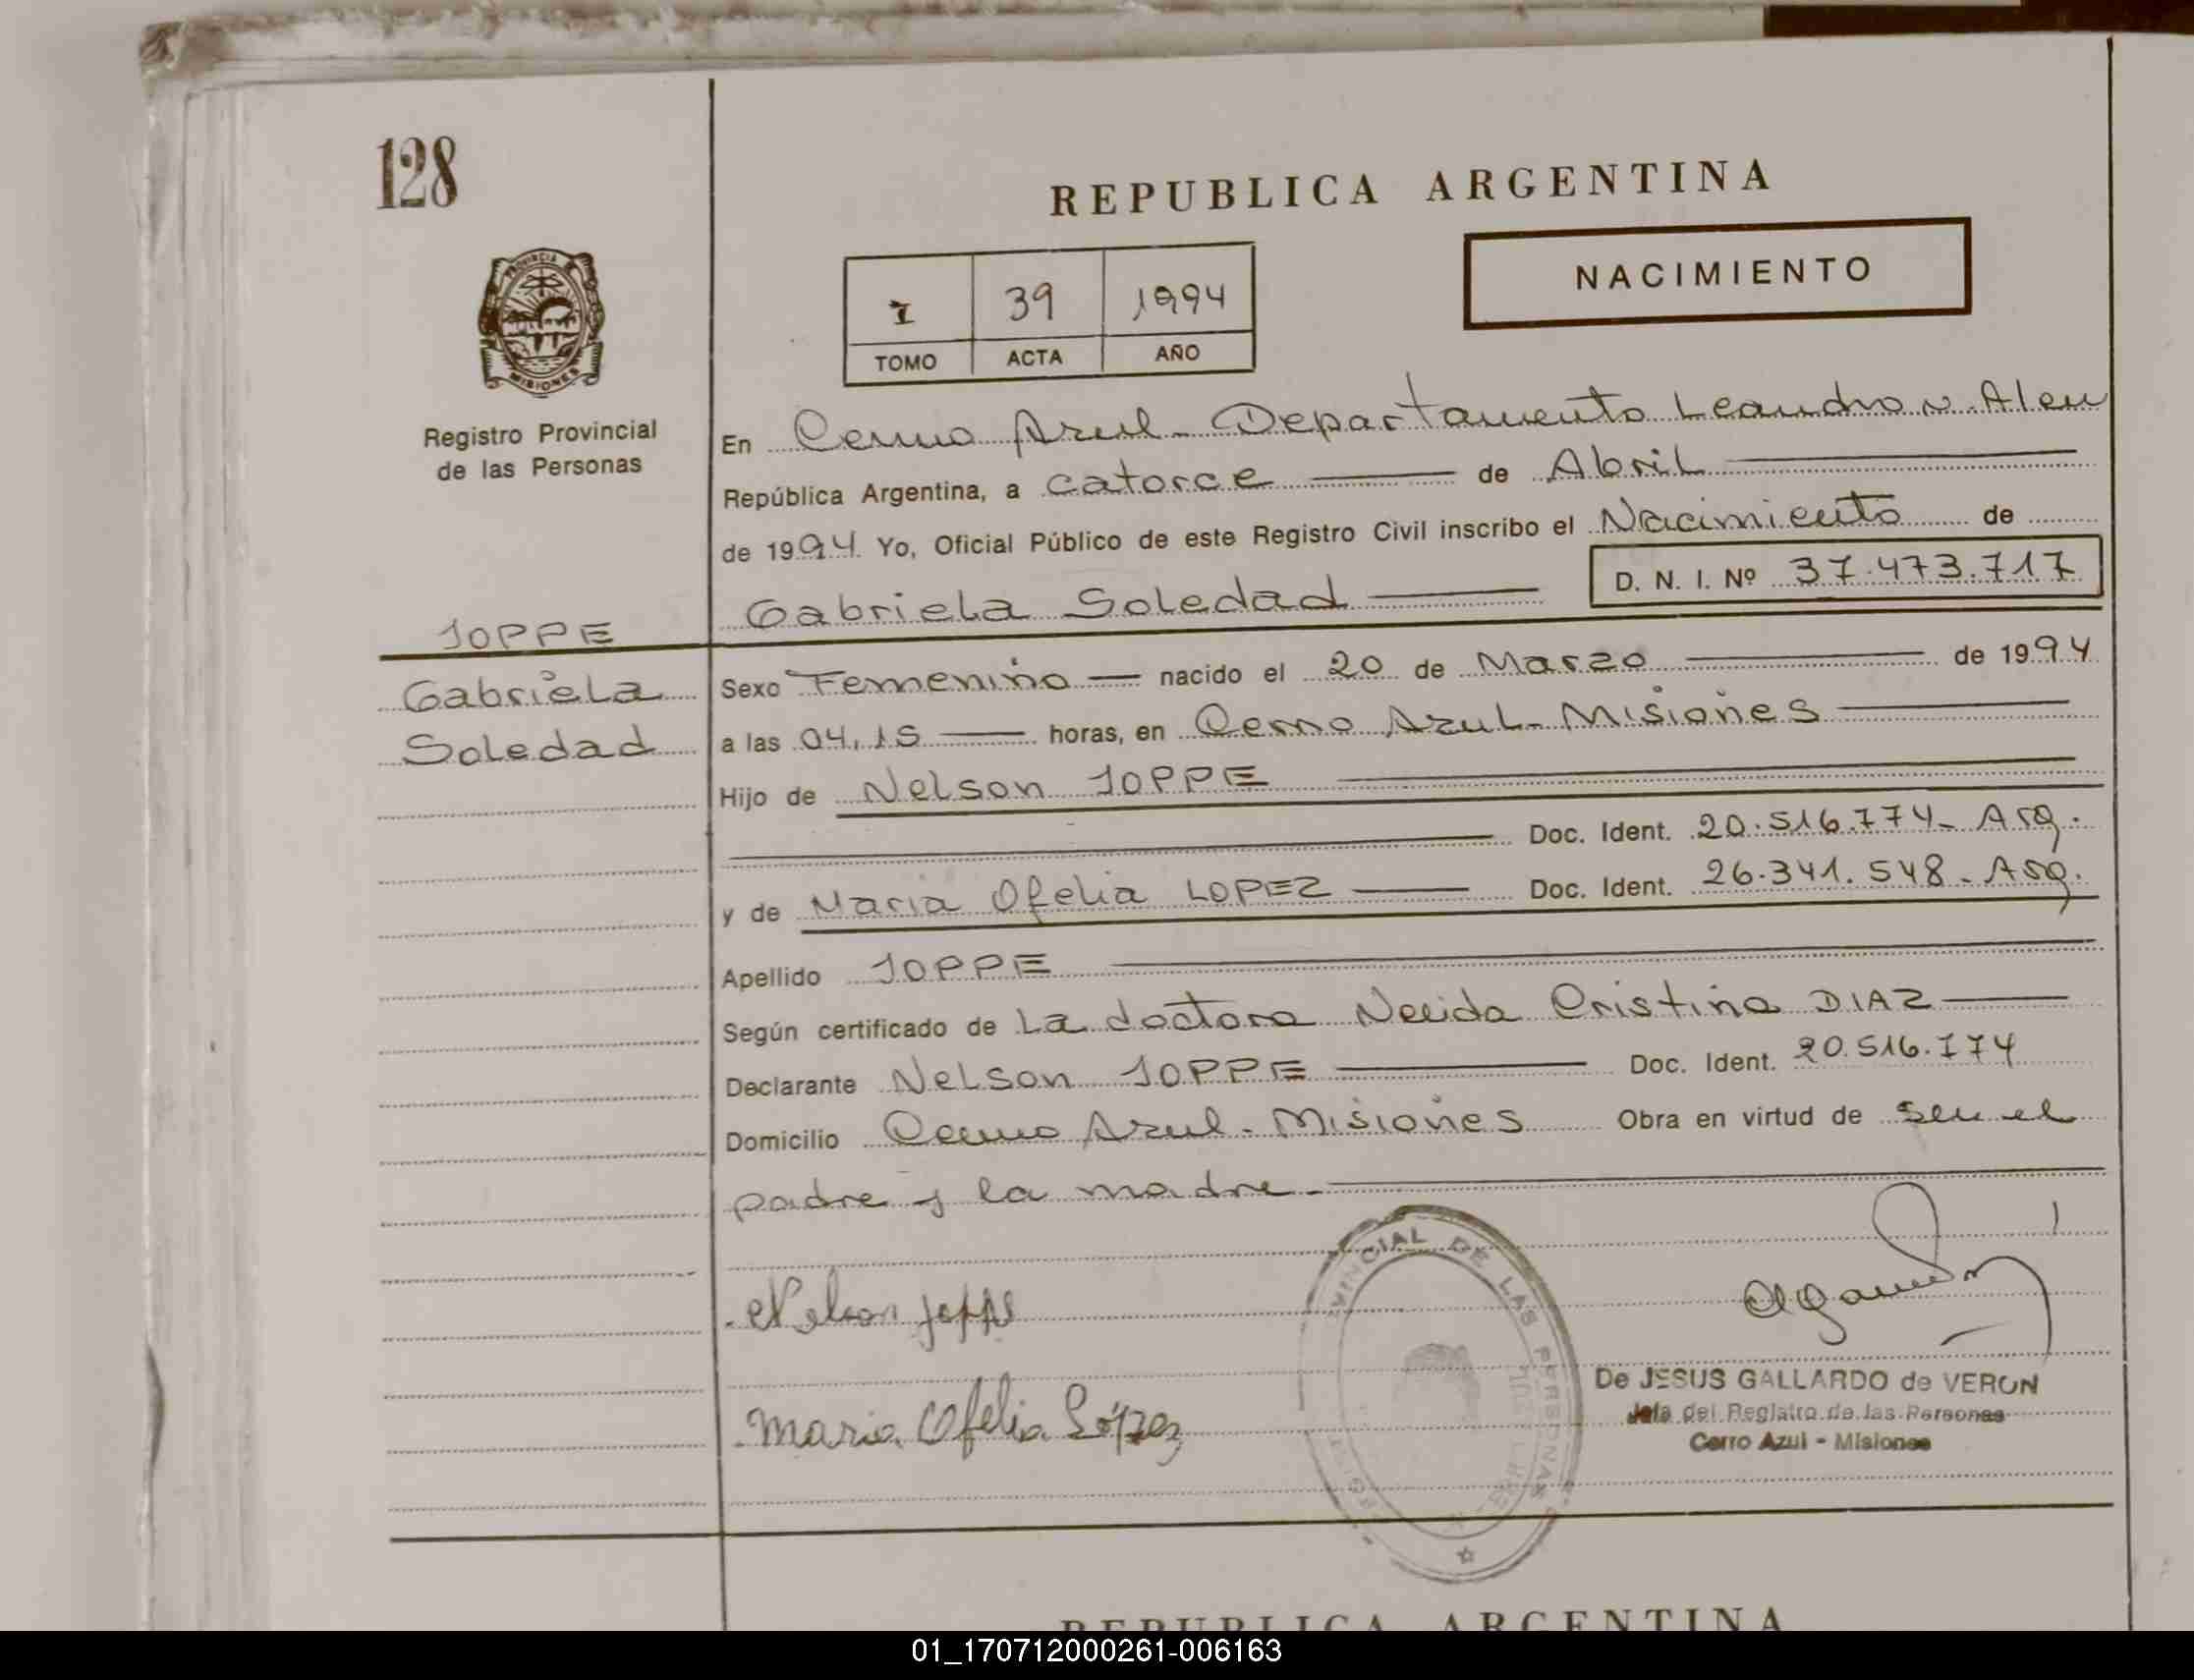 128
REPUBLICA ARGENTINA
NACIMIENTO
I 39 1994
TOMO ACTA AÑO
PROVINCIA
MISIONES
Registro Provincial
de las Personas
En Cerro Azul - Departamento Leandro N. Alem
República Argentina, a catorce de Abril
de 1994 Yo, Oficial Público de este Registro Civil inscribo el Nacimiento de
Gabriela Soledad D. N. I. Nº 37.473.717
JOPPE
Gabriela
Soledad
Sexo Femenino nacido el 20 de Marzo de 1994
a las 04,15 horas, en Cerro Azul - Misiones
Hijo de Nelson JOPPE
Doc. Ident. 20.516.774 - Arg.
y de Maria Ofelia LOPEZ Doc. Ident. 26.341.548 - Arg.
Apellido JOPPE
Según certificado de La doctora Nelida Cristina DIAZ
Declarante Nelson JOPPE Doc. Ident. 20.516.774
Domicilio Cerro Azul - Misiones Obra en virtud de ser el
padre y la madre -
Nelson Joppe
Maria Ofelia López
VINCIAL DE LAS PERSONAS
De JESUS GALLARDO de VERON
Jefa del Registro de las Personas
Cerro Azul - Misiones
REPUBLICA ARGENTINA
01_170712000261-006163